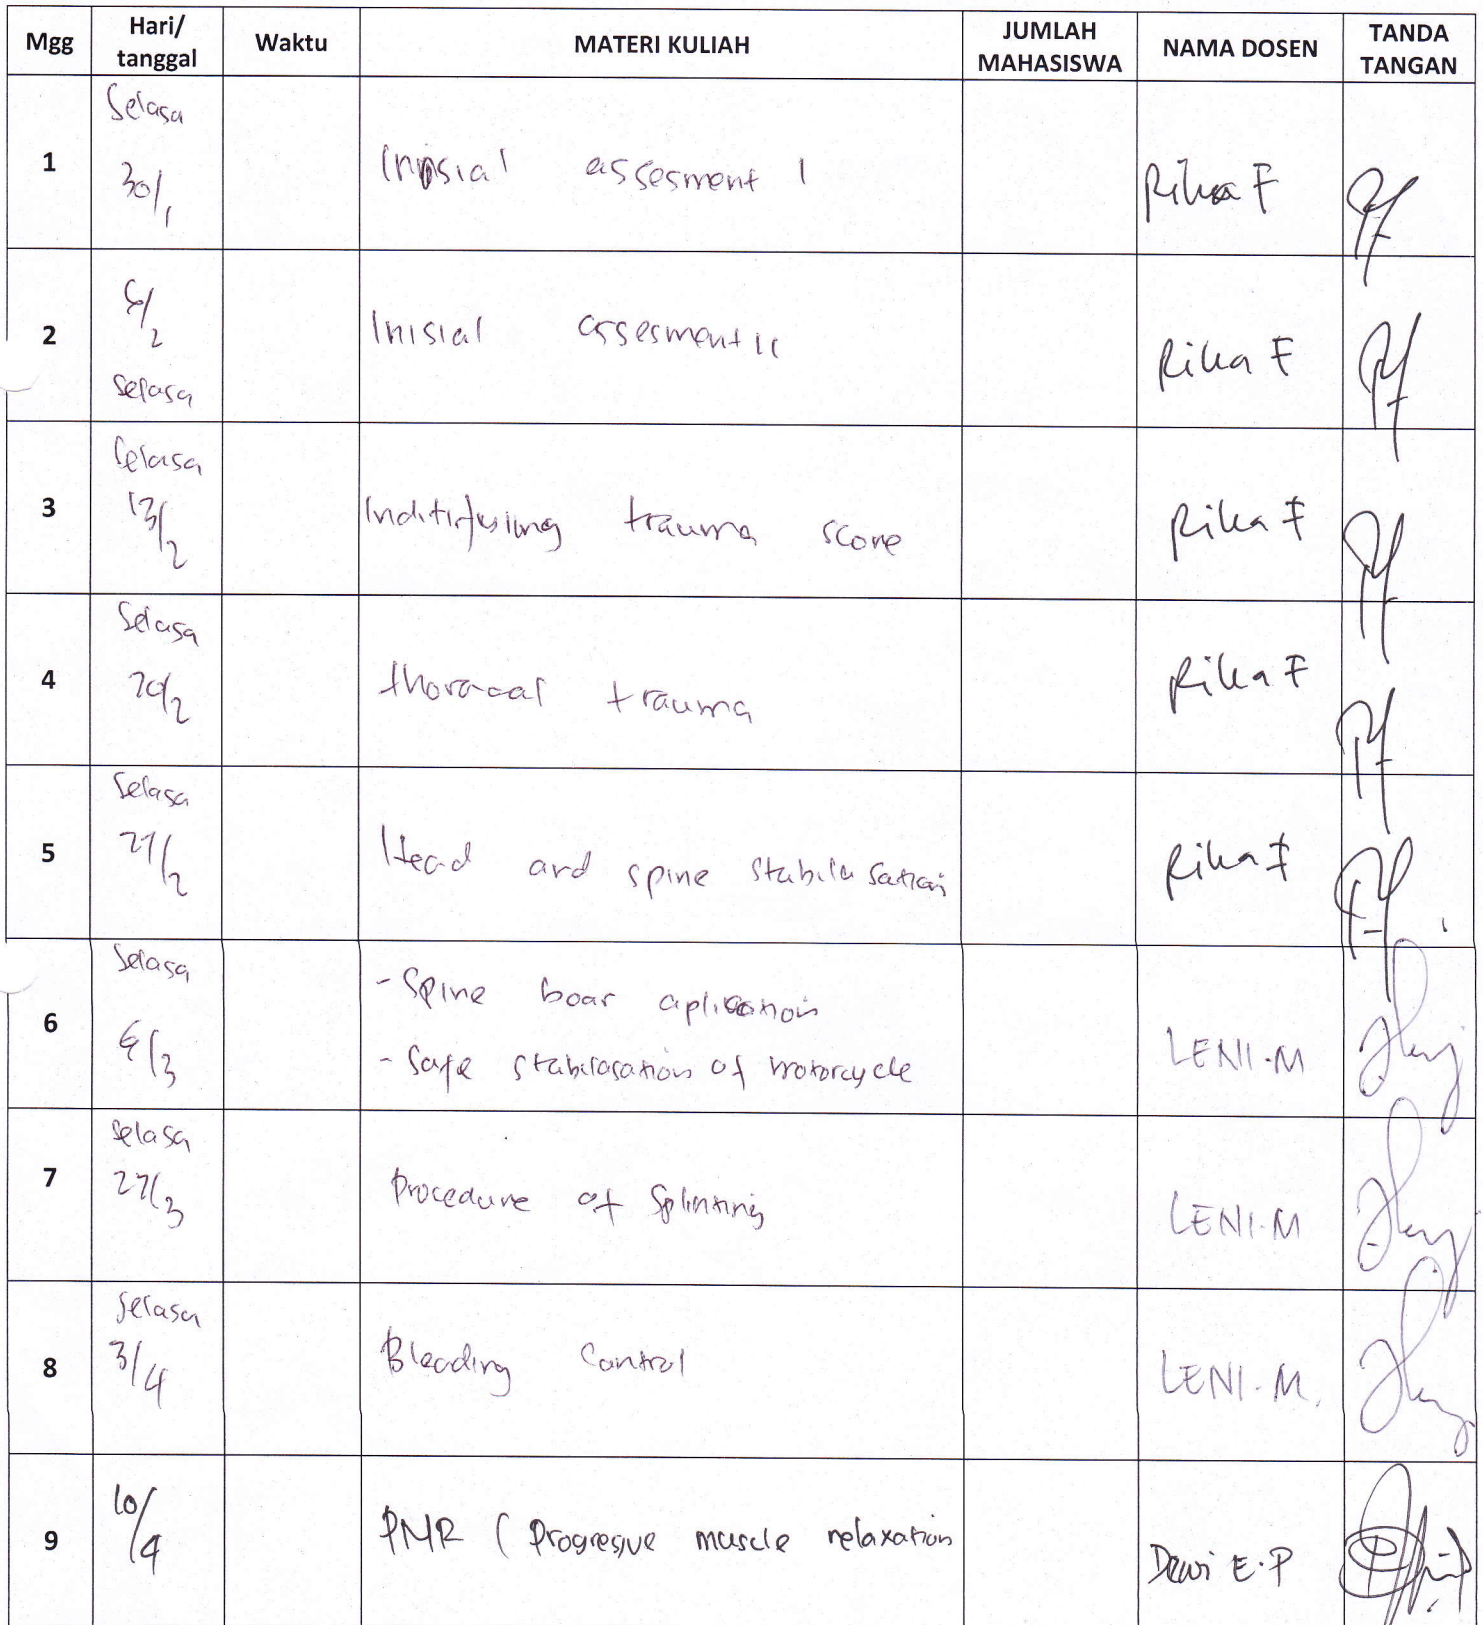 Mgg Hari/ tanggal Waktu MATERI KULIAH JUMLAH MAHASISWA NAMA DOSEN TANDA TANGAN
1 Selasa 30/1 Inisial assesment I Rika F
2 6/2 Selasa Inisial assesment II Rika F
3 Selasa 13/2 trauma score Rika F
4 Selasa 20/2 thoracal trauma Rika F
5 Selasa 27/2 Head and spine stabilisation Rika F
6 Selasa 6/3 - Spine boar aplication
- Safe stabilasation of motorcycle LENI.M
7 Selasa 27/3 Procedure of Splinting LENI.M
8 Selasa 3/4 Bleeding Control LENI.M.
9 10/4 PMR ( Progresive muscle relaxation Dewi E.P